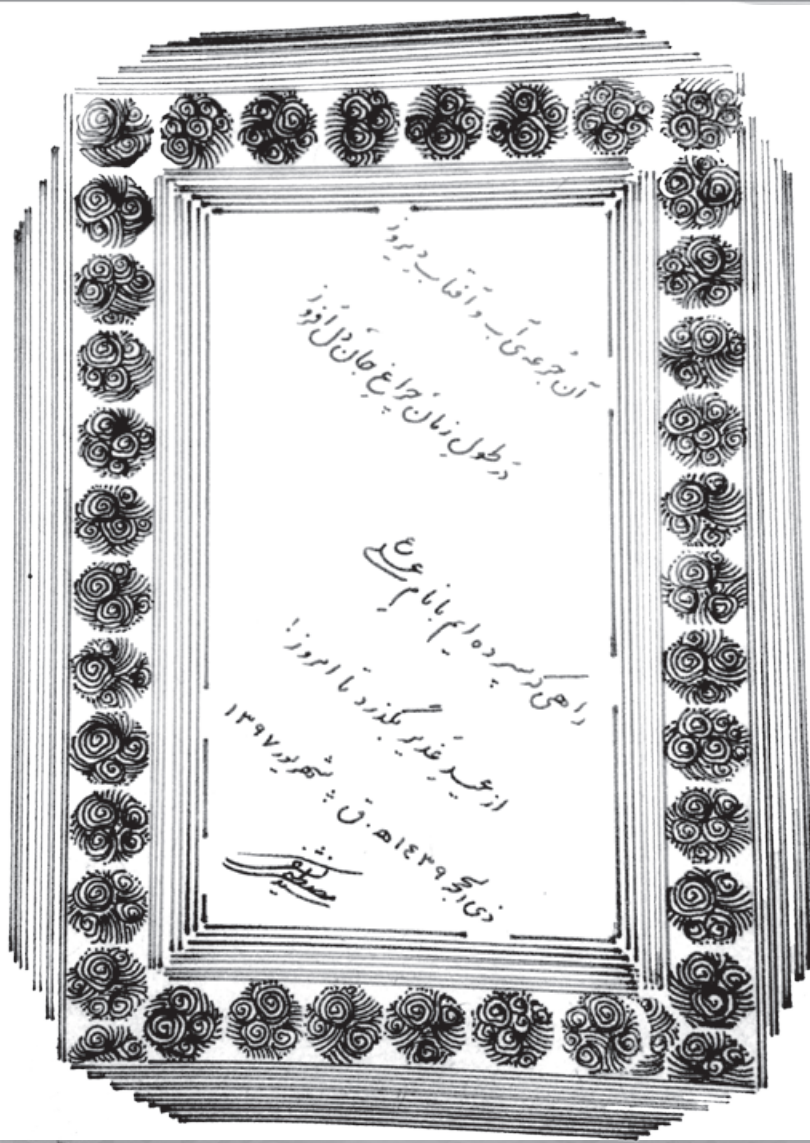 آن جُرعه‌ی آب و آفتاب دیروز
در طولِ زمان چراغِ جان دل‌افروز
راهی که سپرده‌ایم با نام علی
از عیدِ غدیر بگذرد تا امروز!
ذی‌الحجه ۱۴۳۹ ه‍.ق شهریور ۱۳۹۷
سید مصطفی